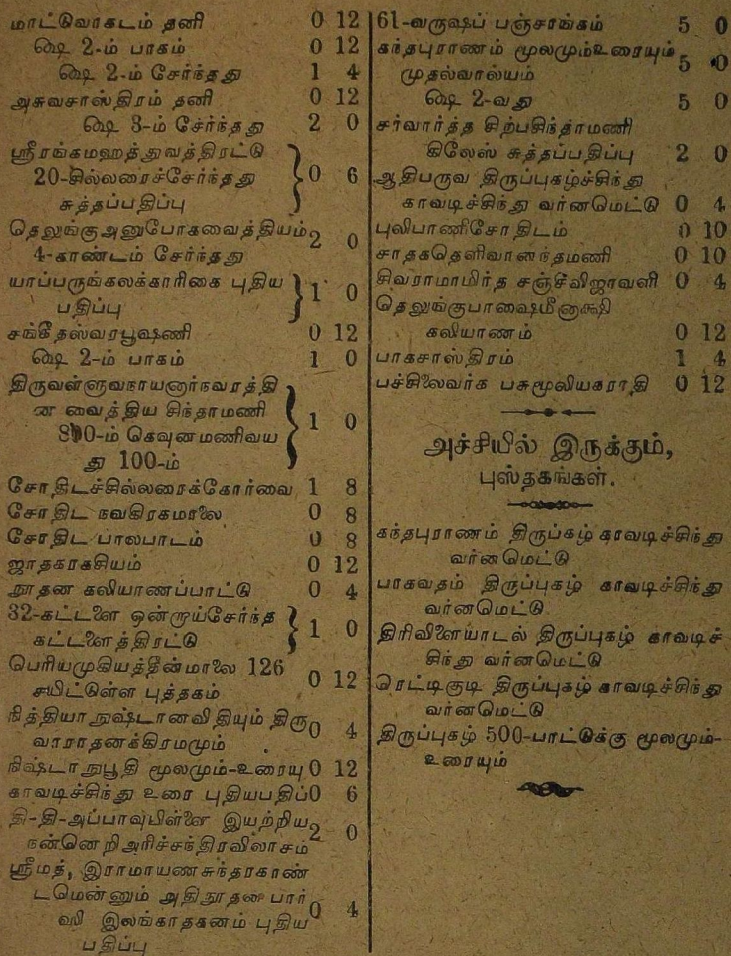 மாட்டுவாகடம் தனி 0 12
ஷெ 2-ம் பாகம் 0 12
ஷெ 2-ம் சேர்ந்தது 1 4
அசுவசாஸ்திரம் தனி 0 12
ஷெ 3-ம் சேர்ந்தது 2 0
ஸ்ரீரங்கமஹத்துவத்திரட்டு
20-சில்லரைச்சேர்ந்தது 0 6
சுத்தப்பதிப்பு
தெலுங்குஅனுபோகவைத்தியம் 2 0
4-காண்டம் சேர்ந்தது
யாப்பருங்கலக்காரிகை புதிய 1 0
பதிப்பு
சங்கீதஸ்வரபூஷணி 0 12
ஷெ 2-ம் பாகம் 1 0
திருவள்ளுவநாயனார்நவரத்தி
ன வைத்திய சிந்தாமணி 1 0
800-ம் கெவுனமணிவய
து 100-ம்
சோதிடச்சில்லரைக்கோர்வை 1 8
சோதிட நவகிரகமாலை 0 8
சோதிட பாலபாடம் 0 8
ஜாதகரகசியம் 0 12
நூதன கலியாணப்பாட்டு 0 4
32-கட்டளை ஒன்றாய்சேர்ந்த 1 0
கட்டளைத்திரட்டு
பெரியமுகியத்தீன்மாலை 126 0 12
சயிட்டுள்ள புத்தகம்
நித்தியாநுஷ்டானவிதியும் திரு 0 4
வாராதனக்கிரமமும்
நிஷ்டாநுபூதி மூலமும்-உரையு 0 12
காவடிச்சிந்து உரை புதியபதிப் 0 6
தி-தி-அப்பாவுபிள்ளை இயற்றிய 2 0
நன்னெறிஅரிச்சந்திரவிலாசம்
ஸ்ரீமத், இராமாயணசுந்தரகாண்
டமென்னும் அதிநூதன பார்
ஸி இலங்காதகனம் புதிய 0 4
பதிப்பு
61-வருஷப் பஞ்சாங்கம் 5 0
கந்தபுராணம் மூலமும்உரையும் 5 0
முதல்வால்யம்
ஷெ 2-வது 5 0
சர்வார்த்த சிற்பசிந்தாமணி
கிலேஸ் சுத்தப்பதிப்பு 2 0
ஆதிபருவ திருப்புகழ்ச்சிந்து
காவடிச்சிந்து வர்னமெட்டு 0 4
புலிபாணிசோதிடம் 0 10
சாதகதெளிவானந்தமணி 0 10
சிவராமாமிர்த சஞ்சீவிஜாவளி 0 4
தெலுங்குபாஷைமீனாக்ஷி
கலியாணம் 0 12
பாகசாஸ்திரம் 1 4
பச்சிலைவர்க பசுமூலியகராதி 0 12
அச்சியில் இருக்கும்,
புஸ்தகங்கள்.
கந்தபுராணம் திருப்கழ் காவடிச்சிந்து
வர்னமெட்டு
பாகவதம் திருப்புகழ் காவடிச்சிந்து
வர்னமெட்டு
திரிவிளையாடல் திருப்புகழ் காவடிச்
சிந்து வர்னமெட்டு
ரெட்டிகுடி திருப்புகழ் காவடிச்சிந்து
வர்னமெட்டு
திருப்புகழ் 500-பாட்டுக்கு மூலமும்-
உரையும்